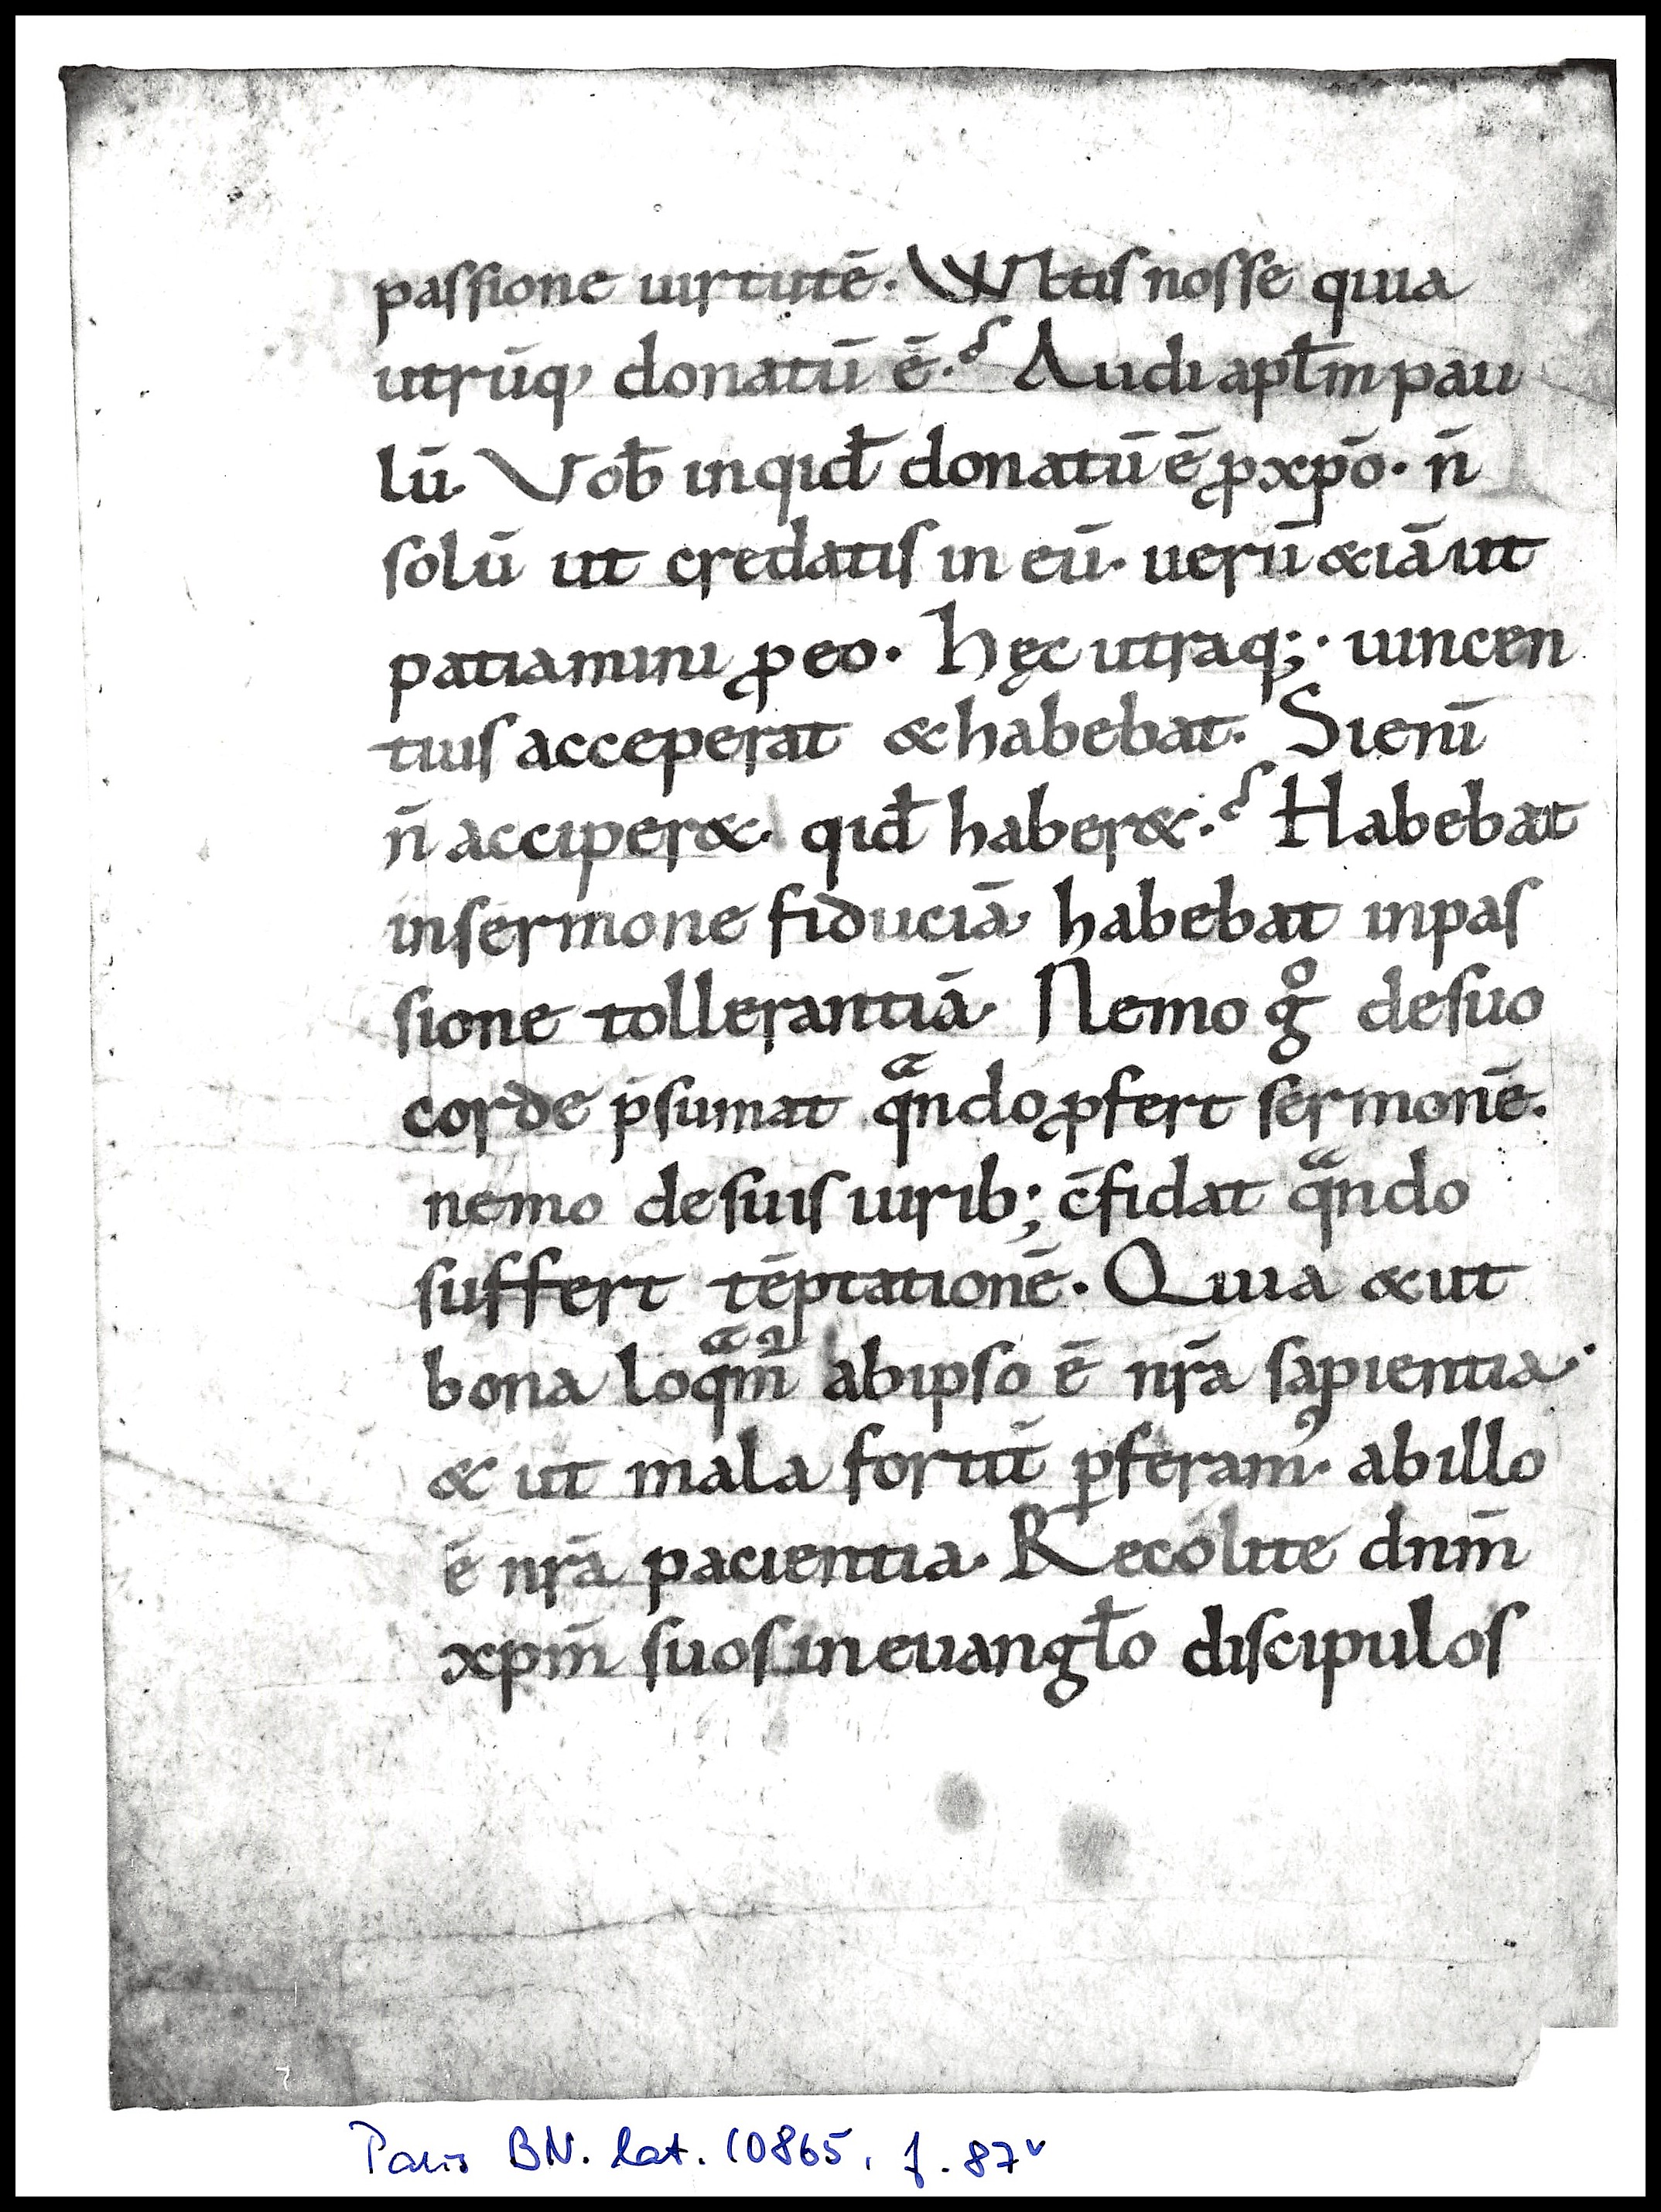 passione uirtutē. Vultis nosse quia
utrūq donatū ē.? Audi apłm pau
lū. Vob̄ inqid̄ donatū ē ꝓ xpō. n̄
solū ut credatis in eū. uerū &iā ut
patiamini ꝓ eo. Hęc utraq;. uincen
tius acceperat & habebat. Si enī
n̄ acciper&. qid̄ haber&.? Habebat
in sermone fiduciā. habebat in pas
sione tollerantiā. Nemo gͦ de suo
corde p̄sumat qᵃndo ꝓfert sermonē.
nemo de suis uirib; c̄fidat qᵃndo
suffert tēptationē. Quia & ut
bona loqᵃm᷒ ab ipso ē nr̄a sapientia.
& ut mala fortit̄ ꝑferam᾽. ab illo
ē nr̄a pacientia. Recolite dnm̄
xpm̄ suos in euangło discipulos
Paris BN. lat. 10865, f. 87v